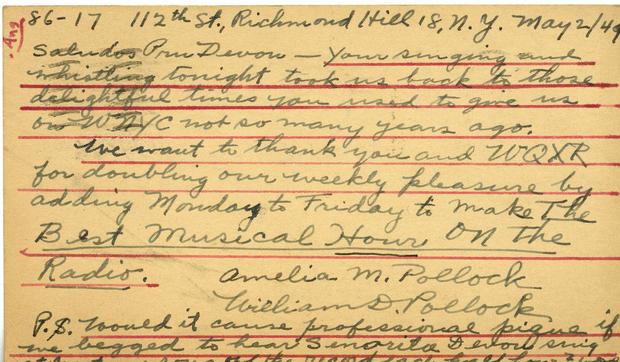 Ans
86-17 112th St., Richmond Hill 18, N.Y. May 2/49
Saludos Pru Devon — Your singing and
whistling tonight took us back to those
delightful times you used to give us
on WNYC not so many years ago.
We want to thank you and WQXR
for doubling our weekly pleasure by
adding Monday to Friday to make The
Best Musical Hour ON the
Radio.
Amelia M. Pollock
William D. Pollock
P.S. Would it cause professional pique if
we begged to hear Senorita Devon sing